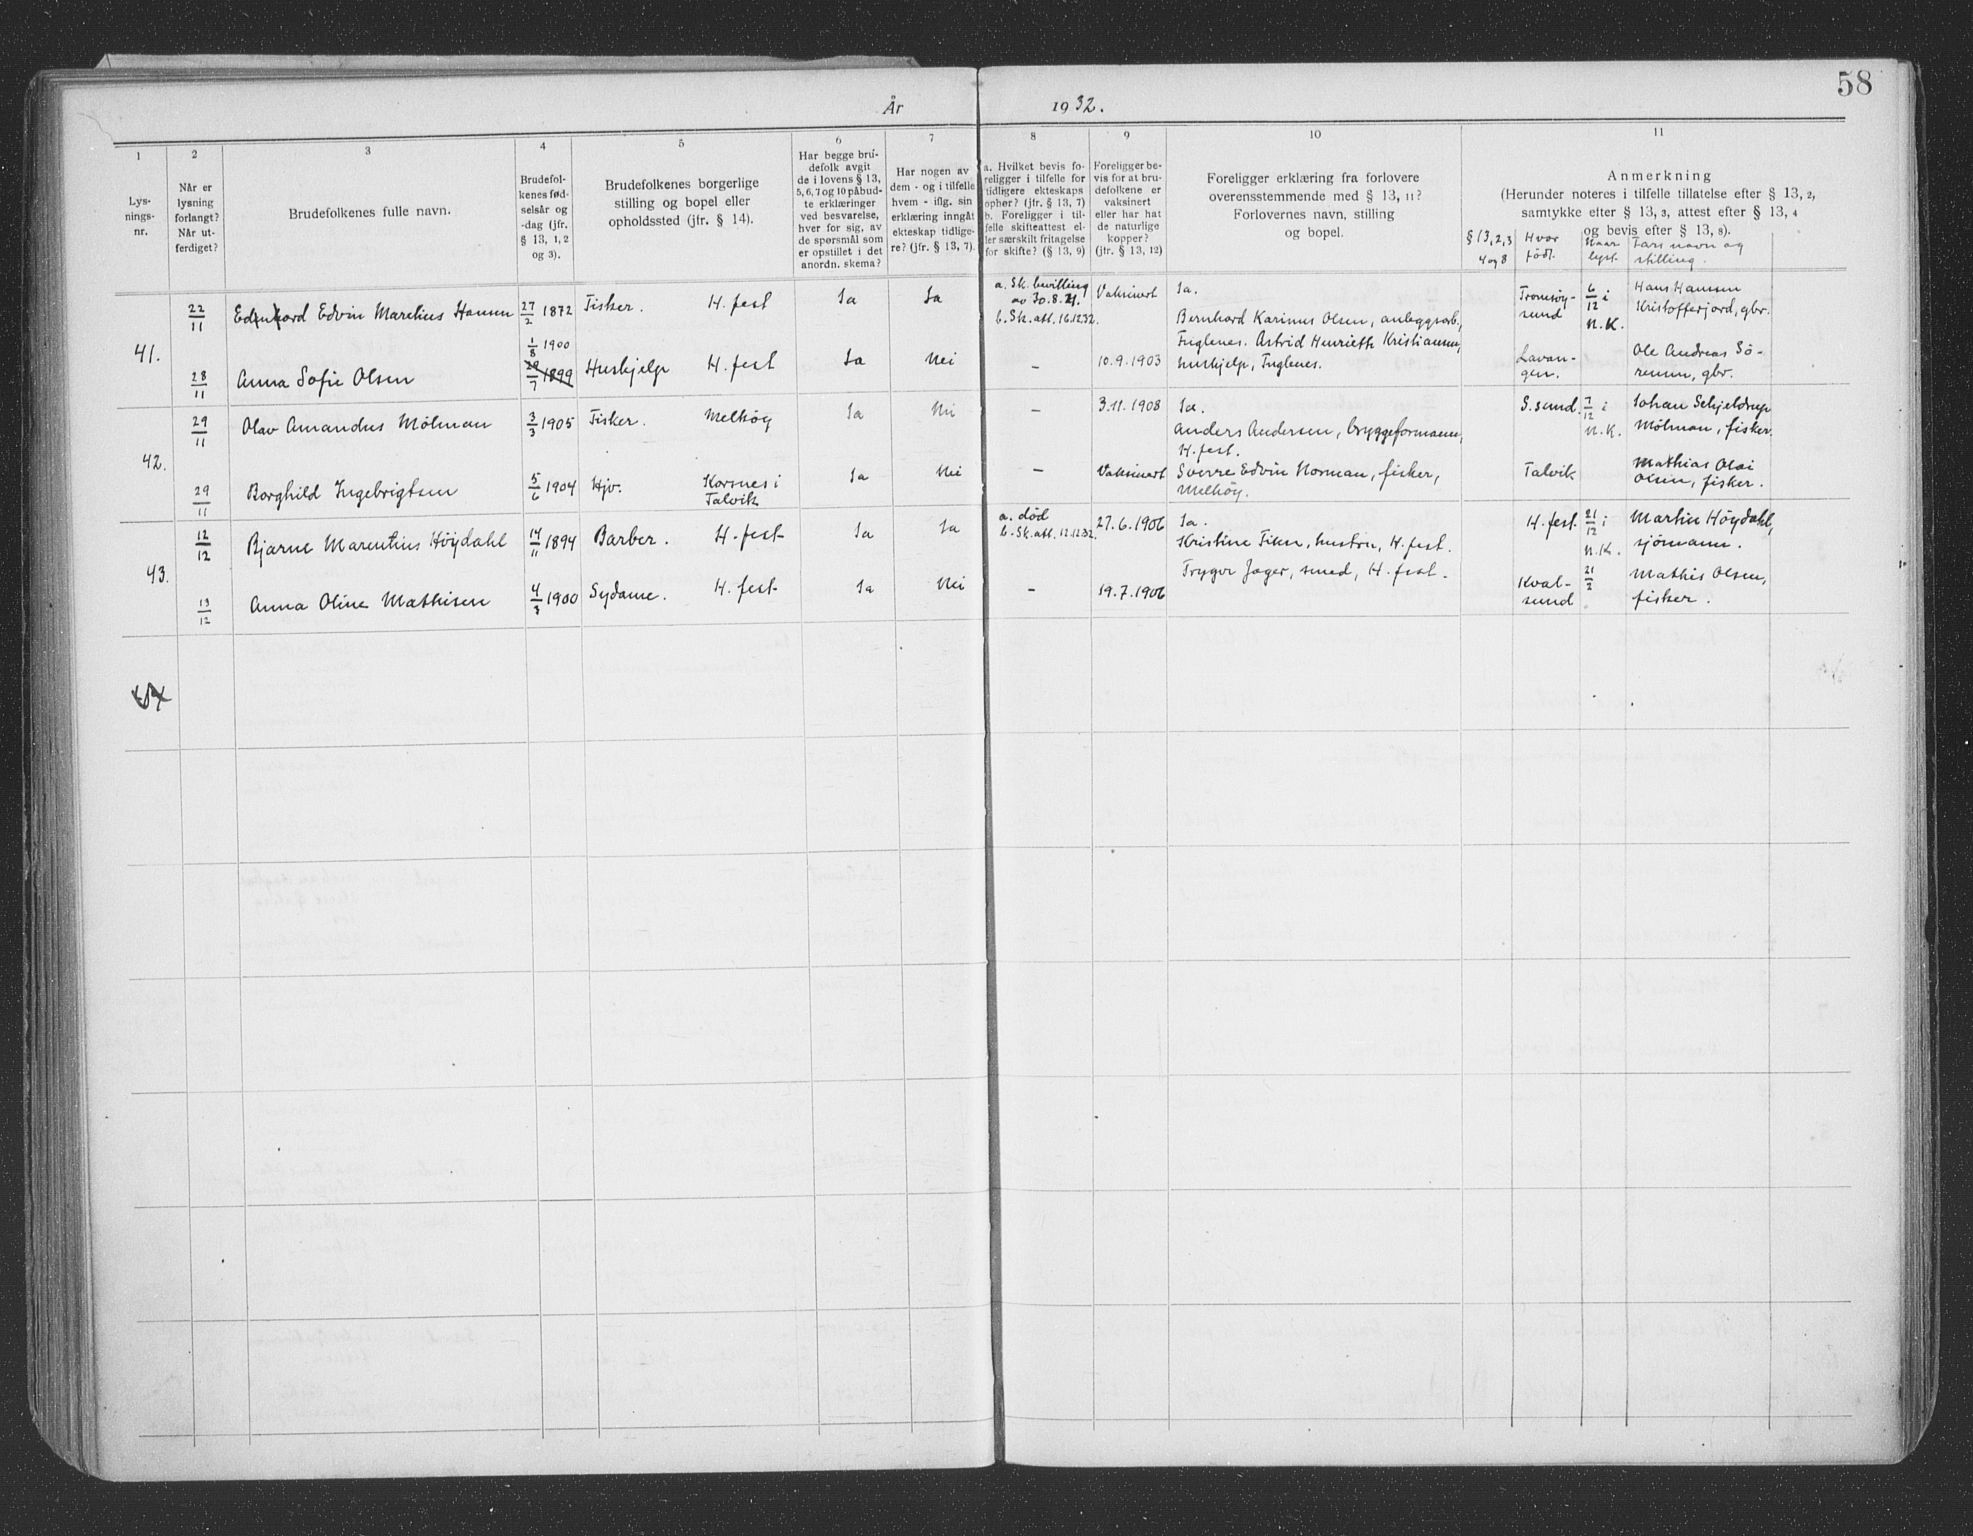 58
År 1932.
1 2 3 4 5 6 7 8 9 10 11
Lys-
nings-
nr.
Når er
lysning
forlangt?
Når ut-
ferdiget?
Brudefolkenes fulle navn.
Brudefol-
kenes fød-
selsår og
-dag (jfr.
§ 13, 1, 2
og 3).
Brudefolkenes borgerlige
stilling og bopel eller
opholdssted (jfr. § 14).
Har begge bru-
defolk avgit
de i lovens § 13,
5, 6, 7 og 10 påbud-
te erklæringer
ved besvarelse,
hver for sig, av
de spørsmål som
er opstillet i det
anordn. skema?
Har nogen av
dem - og i tilfelle
hvem - iflg. sin
erklæring inngått
ekteskap tidlige-
re? (jfr. § 13, 7).
a. Hvilket bevis fo-
religger i tilfelle for
tidligere ekteskaps
ophør? (jfr. § 13, 7)
b. Foreligger i til-
felle skifteattest el-
ler særskilt fritagelse
for skifte? (§ 13, 9)
Foreligger be-
vis for at bru-
defolkene er
vaksinert
eller har hat
de naturlige
kopper?
(jfr. § 13, 12)
Foreligger erklæring fra forlovere
overensstemmende med § 13, 11?
Forlovernes navn, stilling
og bopel.
Anmerkning
(Herunder noteres i tilfelle tillatelse efter § 13, 2,
samtykke efter § 13, 3, attest efter § 13, 4
og bevis efter § 13, 8).
§ 13, 2, 3
4 og 8
Hvor
født.
Naar
lyst.
Fars navn og
stilling.
41.
22/11 Edvin Marelius Hansen 27/2 1872 Fisker. H.fest Ja Ja
a. Sk. bevilling
av 30.8.21.
b. Sk. att. 16.12.32.
Vaksinert
Ja.
Bernhard Karinus Olsen, anleggsarb,
Fuglenes. Astrid Henriette Kristiansen,
hushjelp, Fuglenes.
Tromsøy-
sund
6/12 i
N.K.
Hans Hansen
Kristofferjord, gbr.
28/11 Anna Sofie Olsen 1/8 1900
29/7 1899 Hushjelp H.fest Ja Nei – 10.9.1903
Lavan-
gen.
Ole Andreas Sö-
rensen, gbr.
42.
29/11 Olav Amandus Mölman 3/3 1905 Fisker. Melköy Ja Nei – 3.11.1908
Ja.
Anders Andersen, bryggeformann,
H.fest.
Sverre Edvin Norman, fisker,
Melköy.
S.sund. 7/12 i
N.K.
Johan Schjeldrup
Mölman, fisker.
29/11 Borghild Ingebrigtsen 5/6 1904 Hjv. Korsnes i
Talvik Ja Nei – Vaksinert
Talvik
Mathias Olai
Olsen, fisker.
43.
12/12 Bjarne Marentius Höydahl 14/11 1894 Barber. H.fest Ja Ja
a. död
b. Sk. att. 12.12.32.
27.6.1906
Ja.
Kristine Fiken, hustru, H.fest.
Trygve Jæger, smed, H.fest.
H.fest. 21/12 i
N.K.
Martin Höydahl,
sjömann.
13/12 Anna Oline Mathisen 4/3 1900 Sydame. H.fest Ja Nei – 19.7.1906
Kval-
sund
21/2
Mathis Olsen,
fisker.